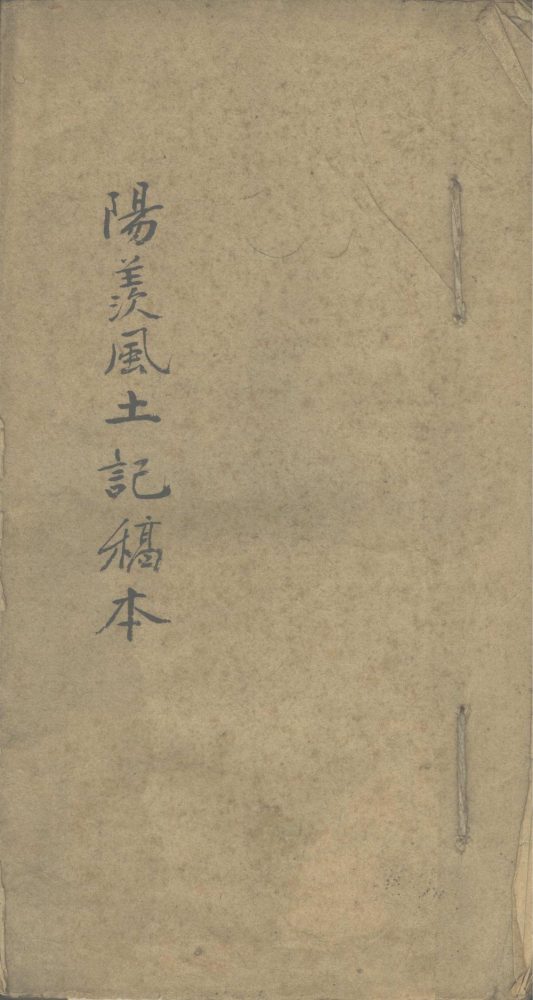 陽羨風土記稿本